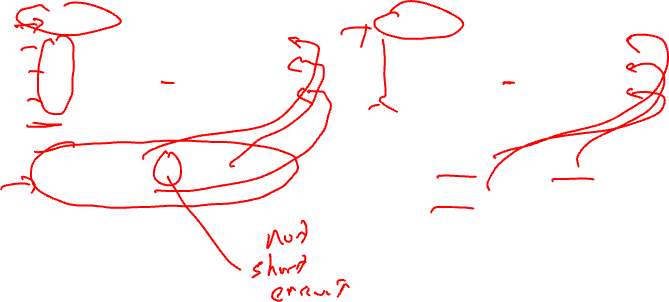 not
short
circuit